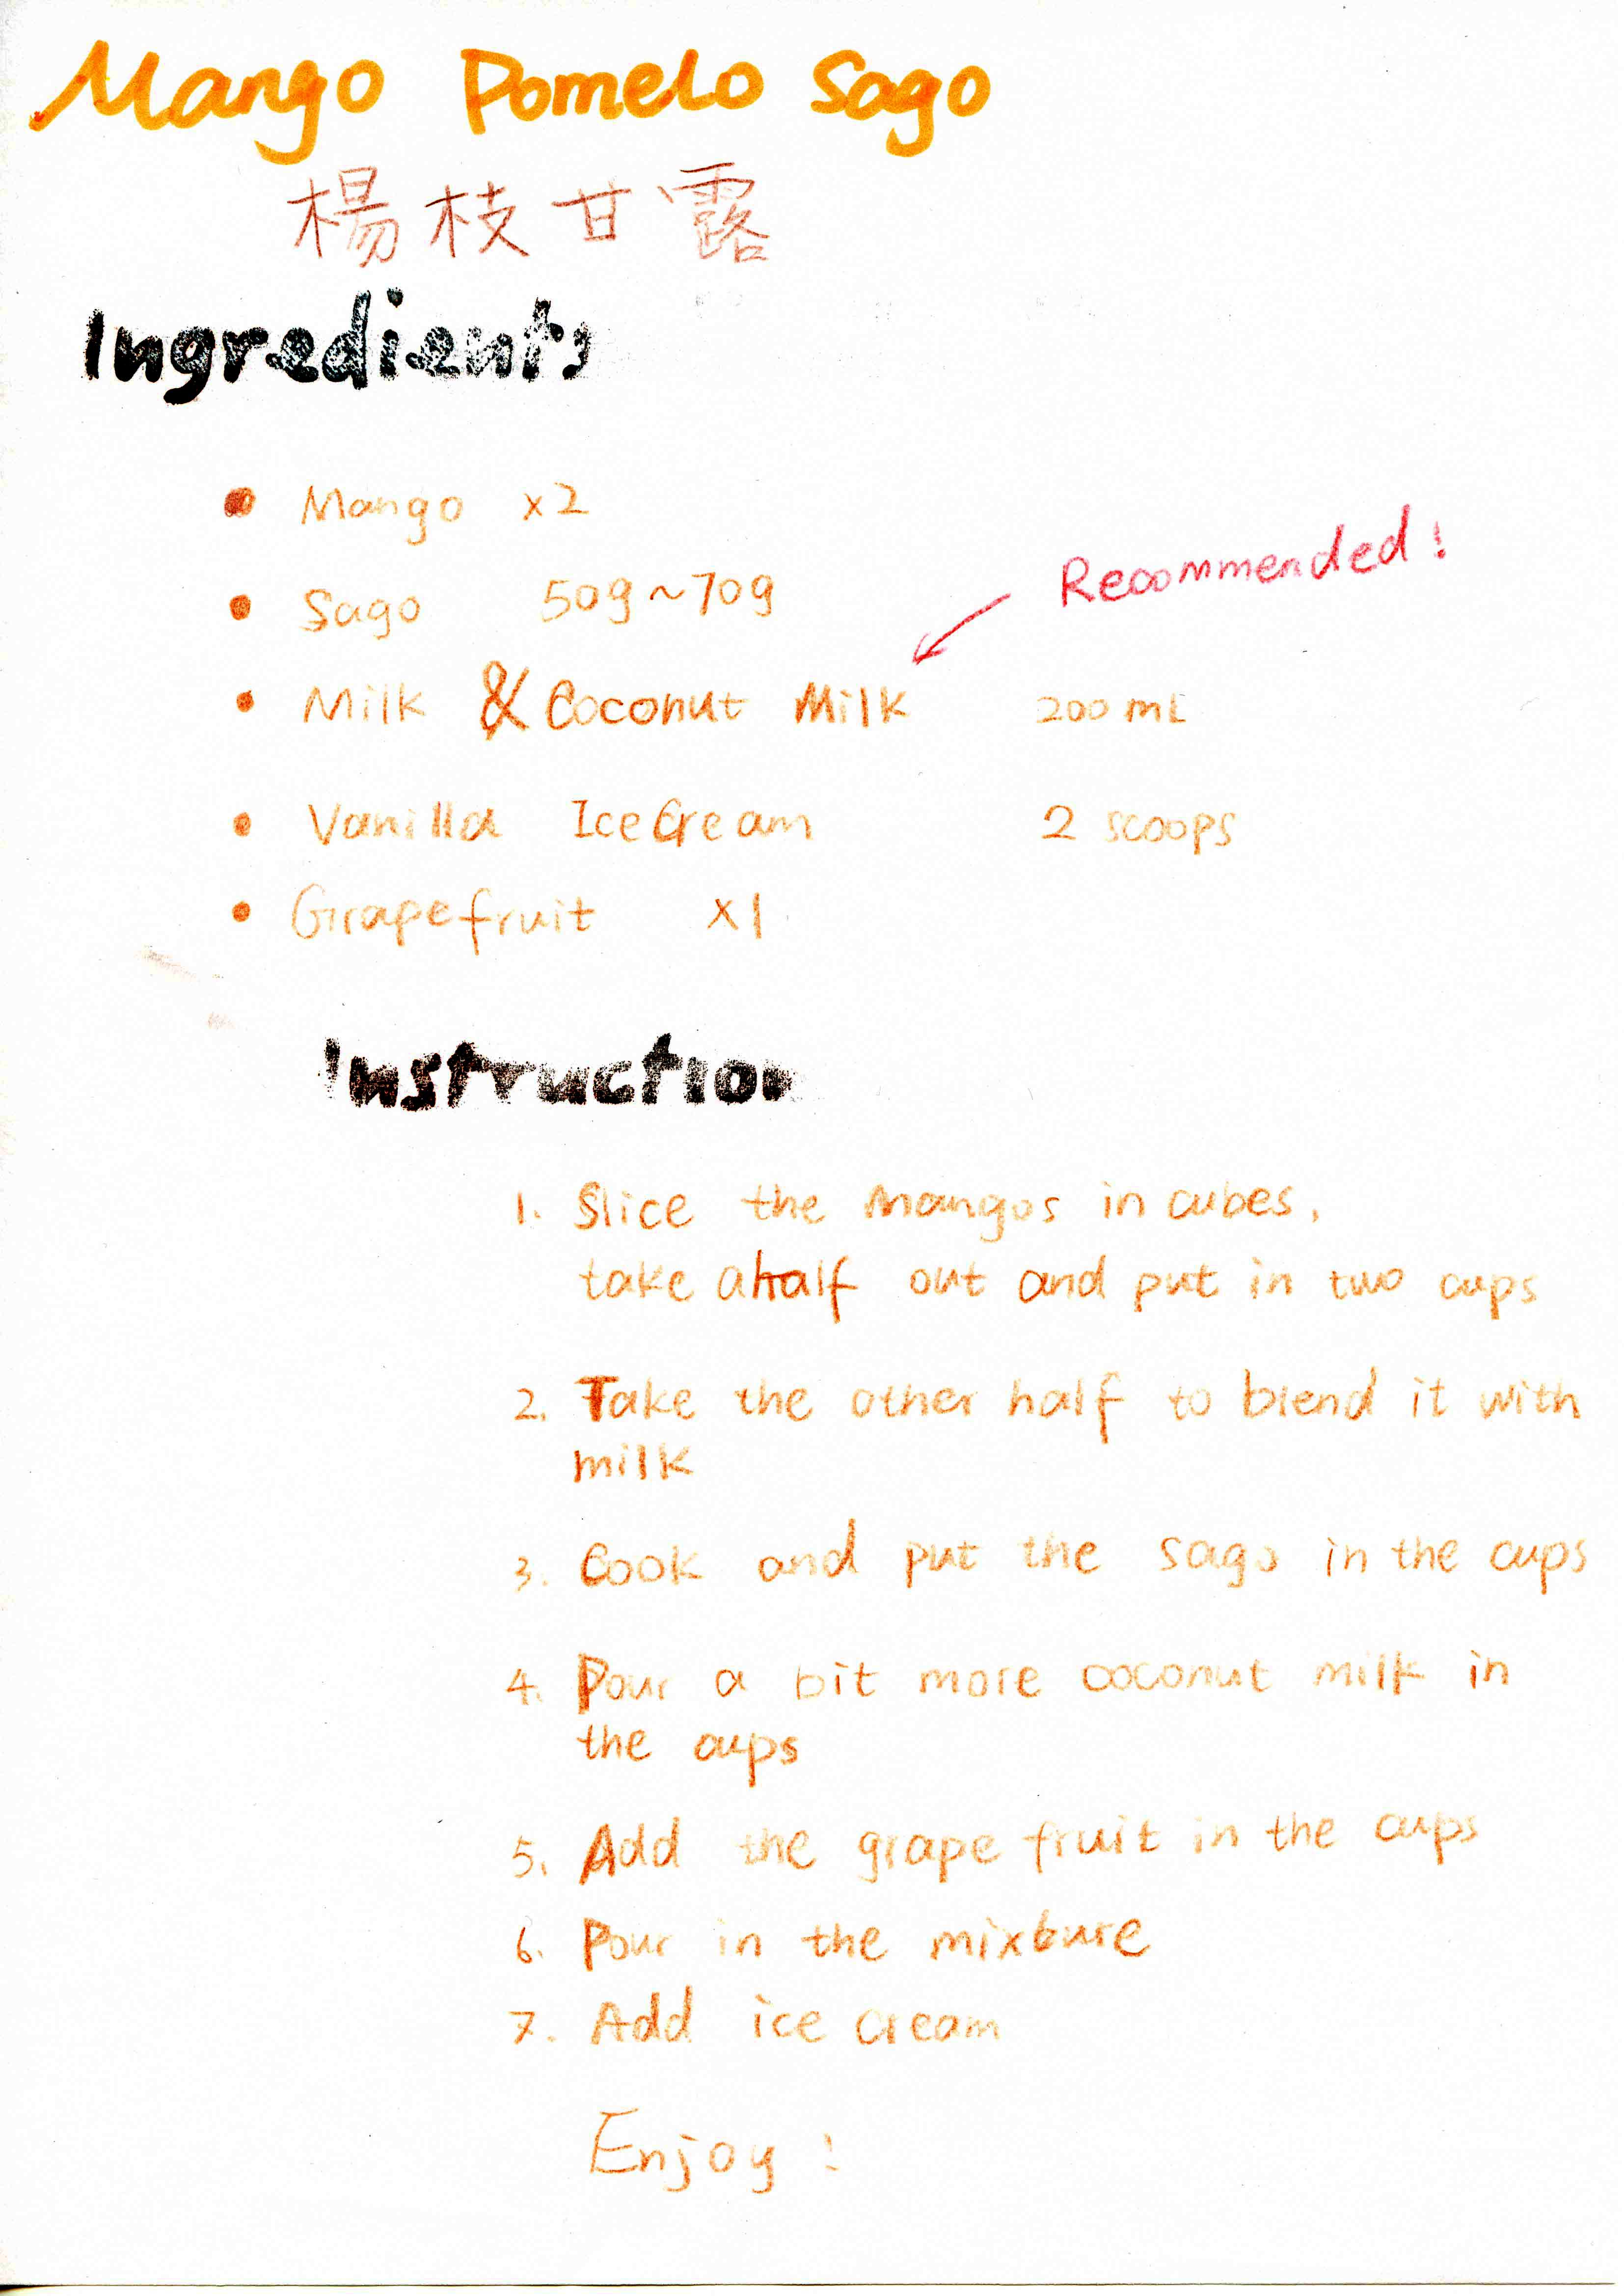 Mango Pomelo Sago
楊枝甘露
Ingredients
• Mango x2
• Sago 50g~70g
Recommended!
• Milk & Coconut Milk 200 mL
• Vanilla Ice Cream 2 scoops
• Grapefruit x1
Instruction
1. Slice the mangos in cubes,
take a half out and put in two cups
2. Take the other half to blend it with
milk
3. Cook and put the sago in the cups
4. Pour a bit more coconut milk in
the cups
5. Add the grape fruit in the cups
6. Pour in the mixture
7. Add ice cream
Enjoy!